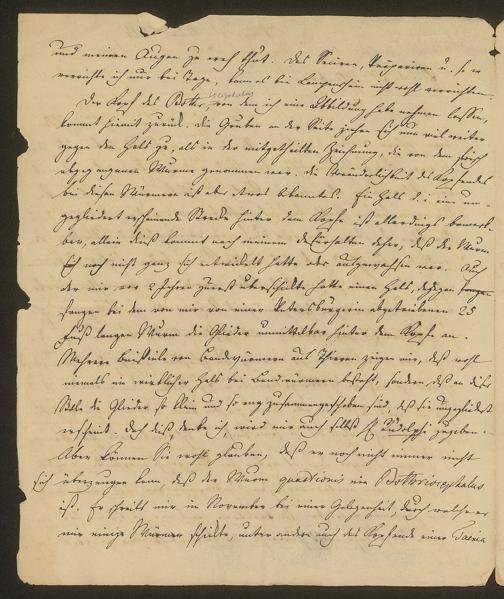 und meinen Augen zu weh thut. Das Seciren, Präpariren u. s. w.
verrichte ich nur bei Tage, kann es bei Lampenschein nicht wohl verrichten.
Der Kopf des Bothriocephalus, von dem ich eine Abbildung habe nehmen lassen,
kommt hiemit zurück. Die Gruben an der Seite ziehen sich nun viel weiter
gegen den Hals zu, als in der mitgetheilten Zeichnung, die von dem frisch
abgegangenen Wurme genommen war. Die Veränderlichkeit des Kopfendes
bei diesen Würmern ist aber etwas bekanntes. Ein Hals d. i. eine un-
gegliedert erscheinende Strecke hinter dem Kopfe ist allerdings bemerk-
bar, allein dieß kommt nach meinem daher, daß der Wurm
sich noch nicht ganz entwickelt hatte oder ausgewachsen war. Auch
der mir vor 2 Jahren zuerst überschickte hatte einen Hals, dagegen
fangen bei dem von mir von einer Petersburgerin abgetriebenen 25
Fuß langen Wurm die Glieder unmittelbar hinter dem Kopfe an.
Mehrere Beispiele von Bandwürmern aus Thieren zeigen mir, daß wohl
niemals ein wirklicher Hals bei Bandwürmern besteht, sondern daß an dieser
Stelle die Glieder so klein und so eng zusammengeschoben sind, daß sie ungegliedert
erscheint. Doch dieß, denke ich, wird mir auch selbst H. Rudolphi zugeben.
Aber können Sie wohl glauben, daß er noch nicht immer nicht
sich überzeugen kann, daß der Wurm quaestionis ein Bothriocephalus
ist. Er schrieb mir im November bei einer Gelegenheit, durch welche er
mir einige Würmer schickte, unter andern auch das Kopfende einer Taenia